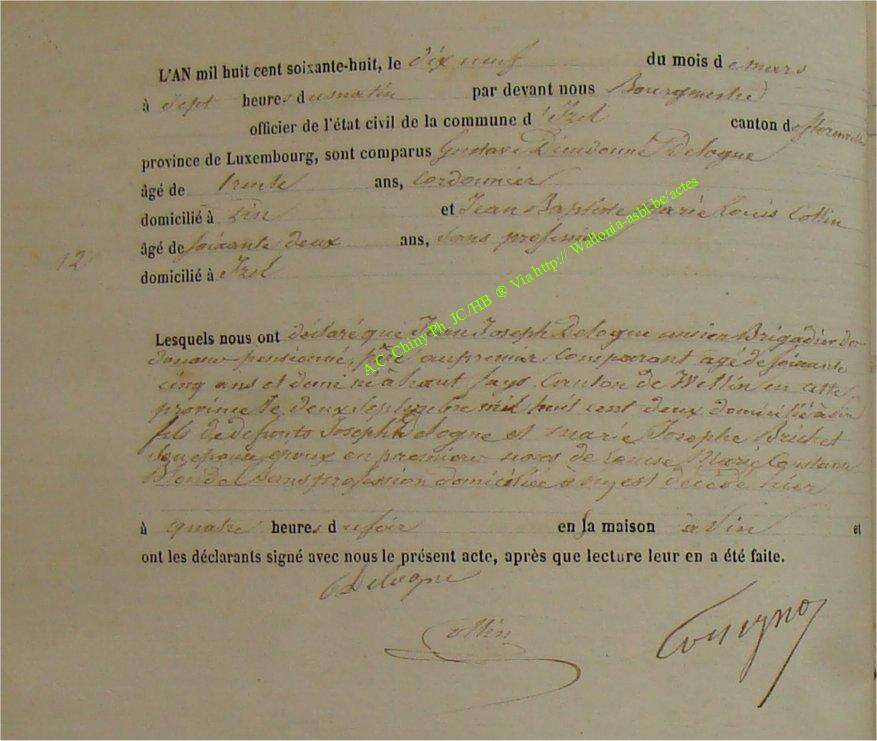 L'AN mil huit cent soixante-huit, le dix neuf du mois de mars
à Sept heures du matin par devant nous Bourgmestre
officier de l'état civil de la commune d'Izel canton de florenville
province de Luxembourg, sont comparus Gustave Dieudonné Delogne
âgé de trente ans, Cordonnier
domicilié à Pin et Jean Baptiste marie Louis Collin
âgé de soixante deux ans, Sans profession
12
domicilié à Izel
Lesquels nous ont déclaré que Jean Joseph Delogne ancien Brigadier de
douane pensionné, père au premier Comparant agé de soixante
cinq ans et demi né à haut fays, Canton de Wellin en cette
province le deux Septembre mil huit cent deux domicilié à Pin
fils de defunts Joseph Delogne et marie Josephe
Son épouse, époux en premières noces de Louise Marie Constance
Blondel Sans profession domiciliée à est décédé hier
à quatre heures du soir en sa maison à Pin et
ont les déclarants signé avec nous le présent acte, après que lecture leur en a été faite.
Delogne
Collin
A.C. Chiny Ph. JC/HB ® Via http:// Wallonia-asbl-be/actes